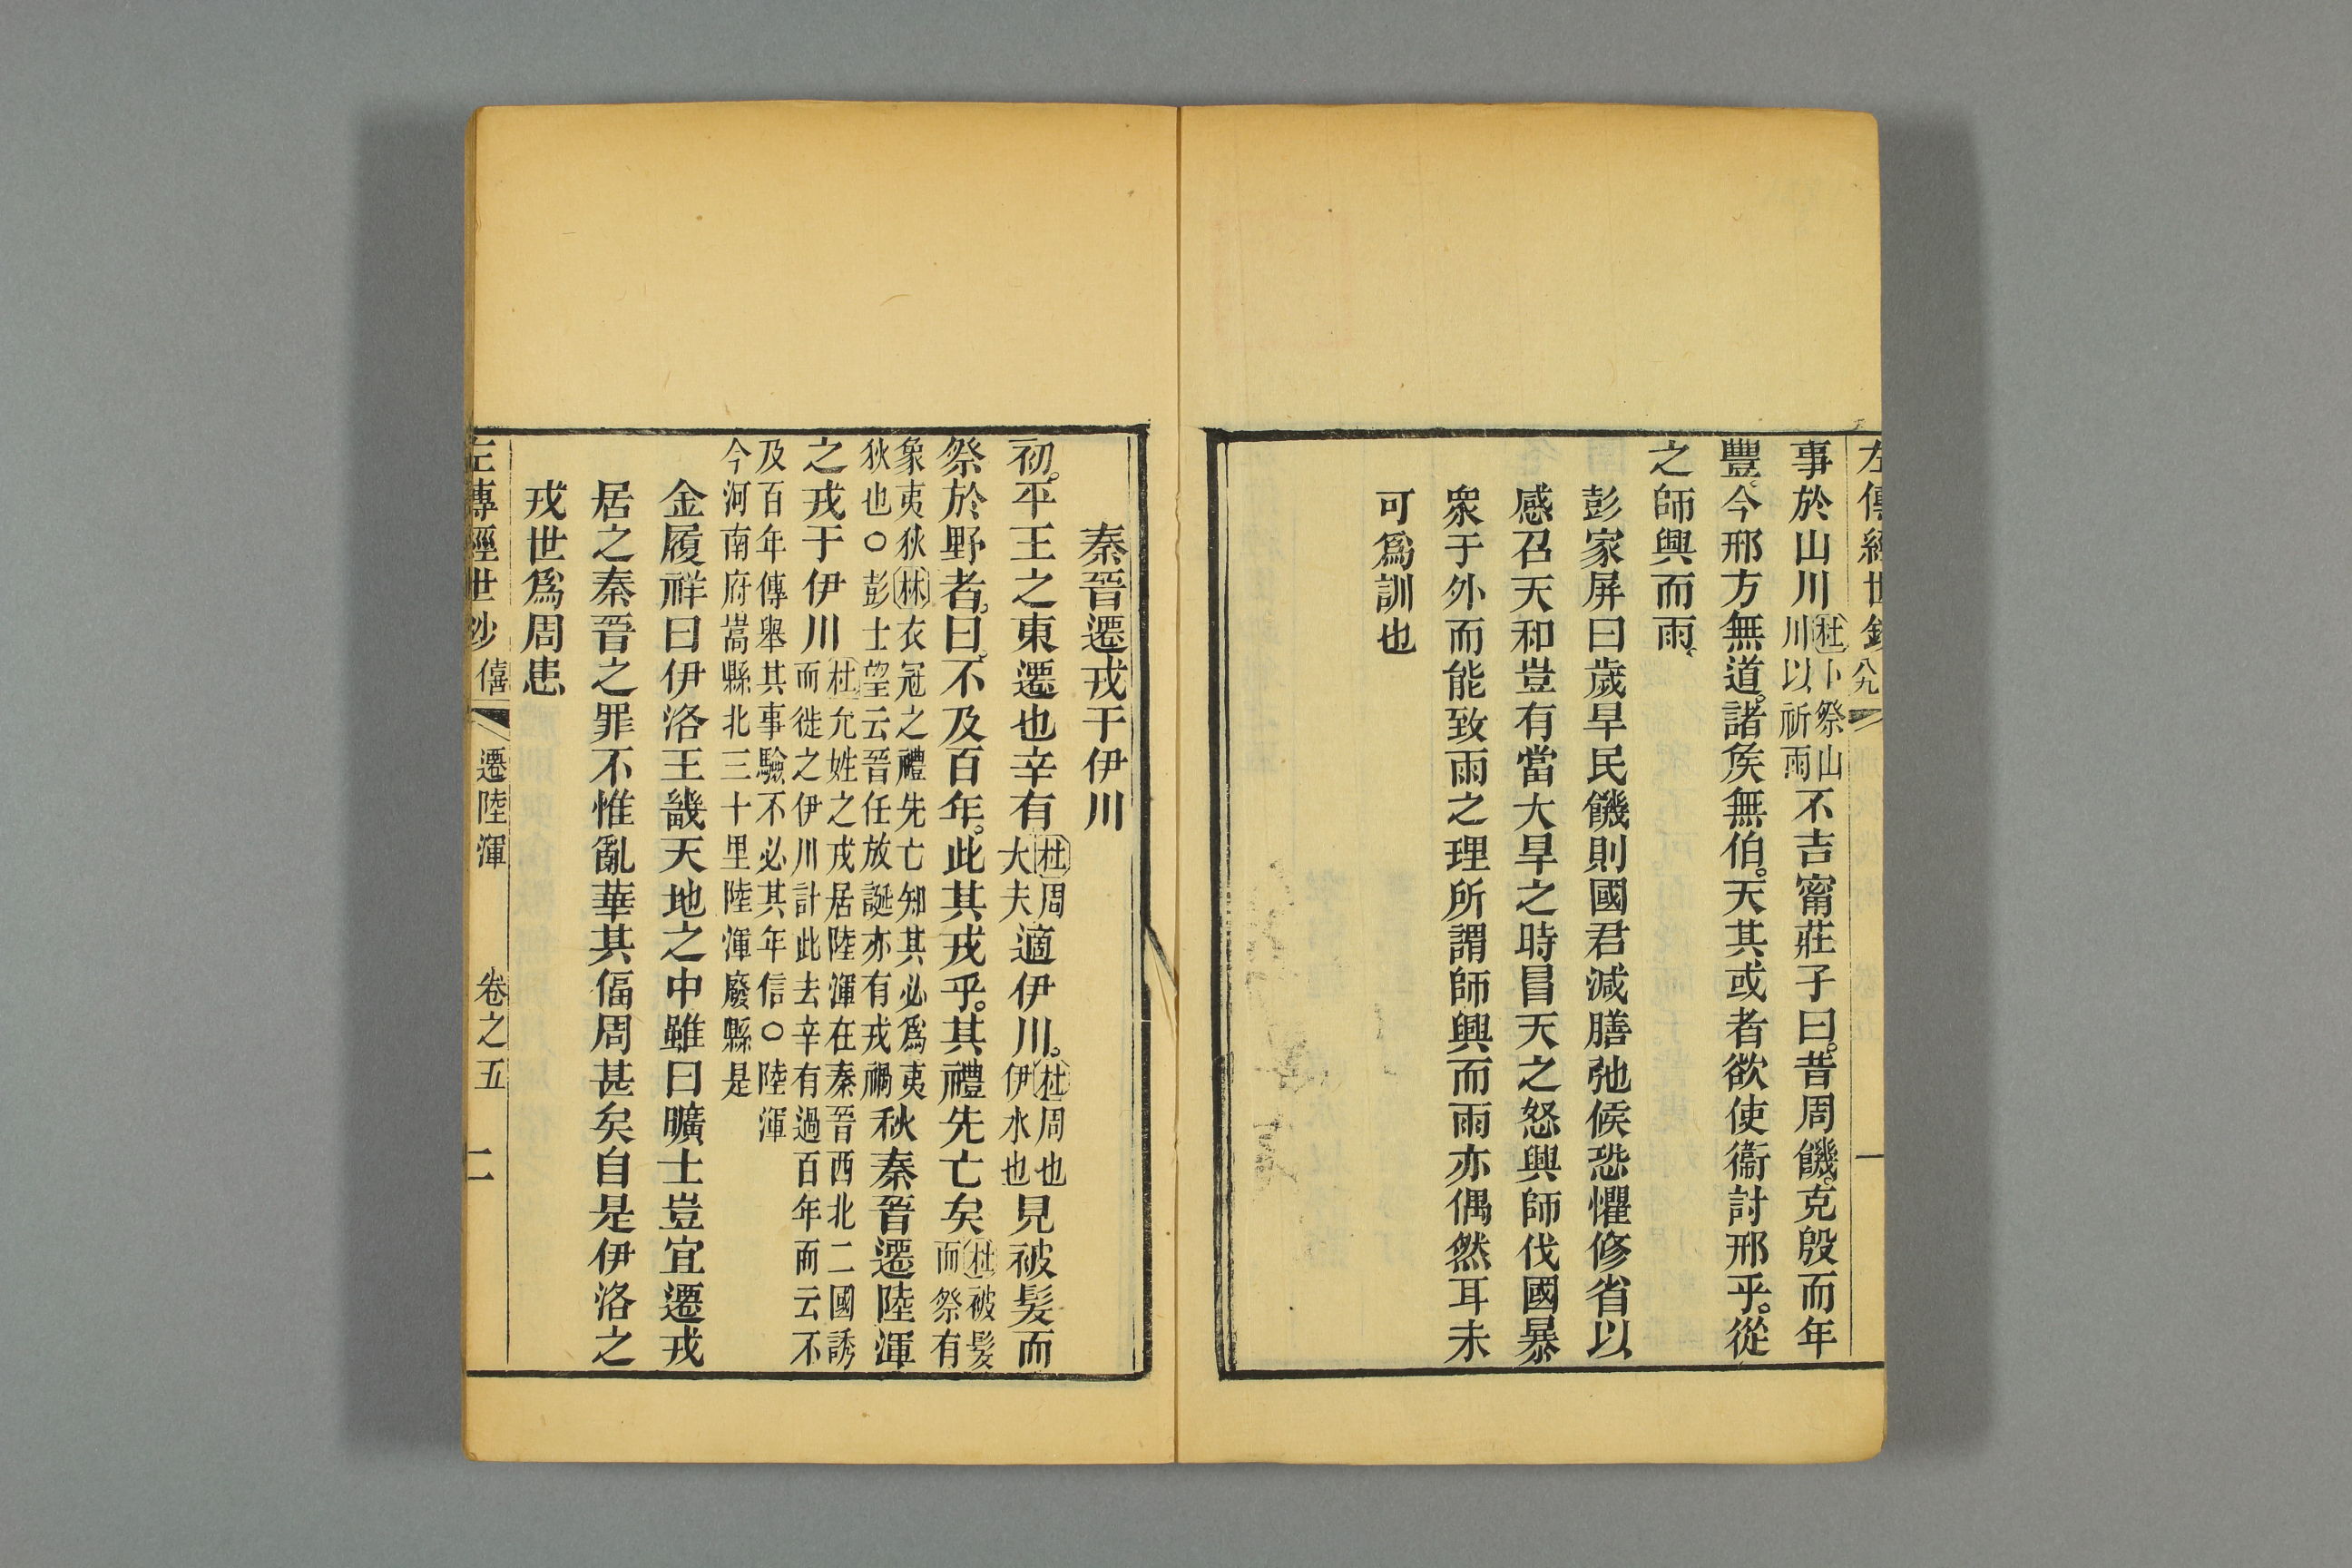 左傳經世鈔
事於山川杜卜祭山川以祈雨不吉甯莊子曰。昔周饑。克殷而年
豐。今邢方無道。諸矦無伯。天其或者欲使衞討邢乎。從
之師興而雨、
彭家屏曰歲旱民饑則國君減膳弛候恐懼修省以
感召天和豈有當大旱之時冒天之怒興師伐國暴
衆于外而能致雨之理所謂師興而雨亦偶然耳未
可爲訓也
秦晉遷戎于伊川
初。平王之東遷也辛有杜周大夫適伊川。杜周也伊水也見被髮而
祭於野者。曰。不及百年。此其戎乎。其禮先亡矣杜被髮而祭有
象夷狄林衣冠之禮先亡知其必爲夷狄也○彭士望云晉任放誕亦有戎禍秋秦晉遷陸渾
之戎于伊川杜允姓之戎居陸渾在秦晉西北二國誘而徙之伊川計此去辛有過百年而云不
及百年傳舉其事驗不必其年信○陸渾今河南府嵩縣北三十里陸渾廢縣是
金履祥曰伊洛王畿天地之中雖曰曠土豈宜遷戎
居之秦晉之罪不惟亂華其偪周甚矣自是伊洛之
戎世爲周患
左傳經世鈔 僖 遷陸渾 卷之五 二